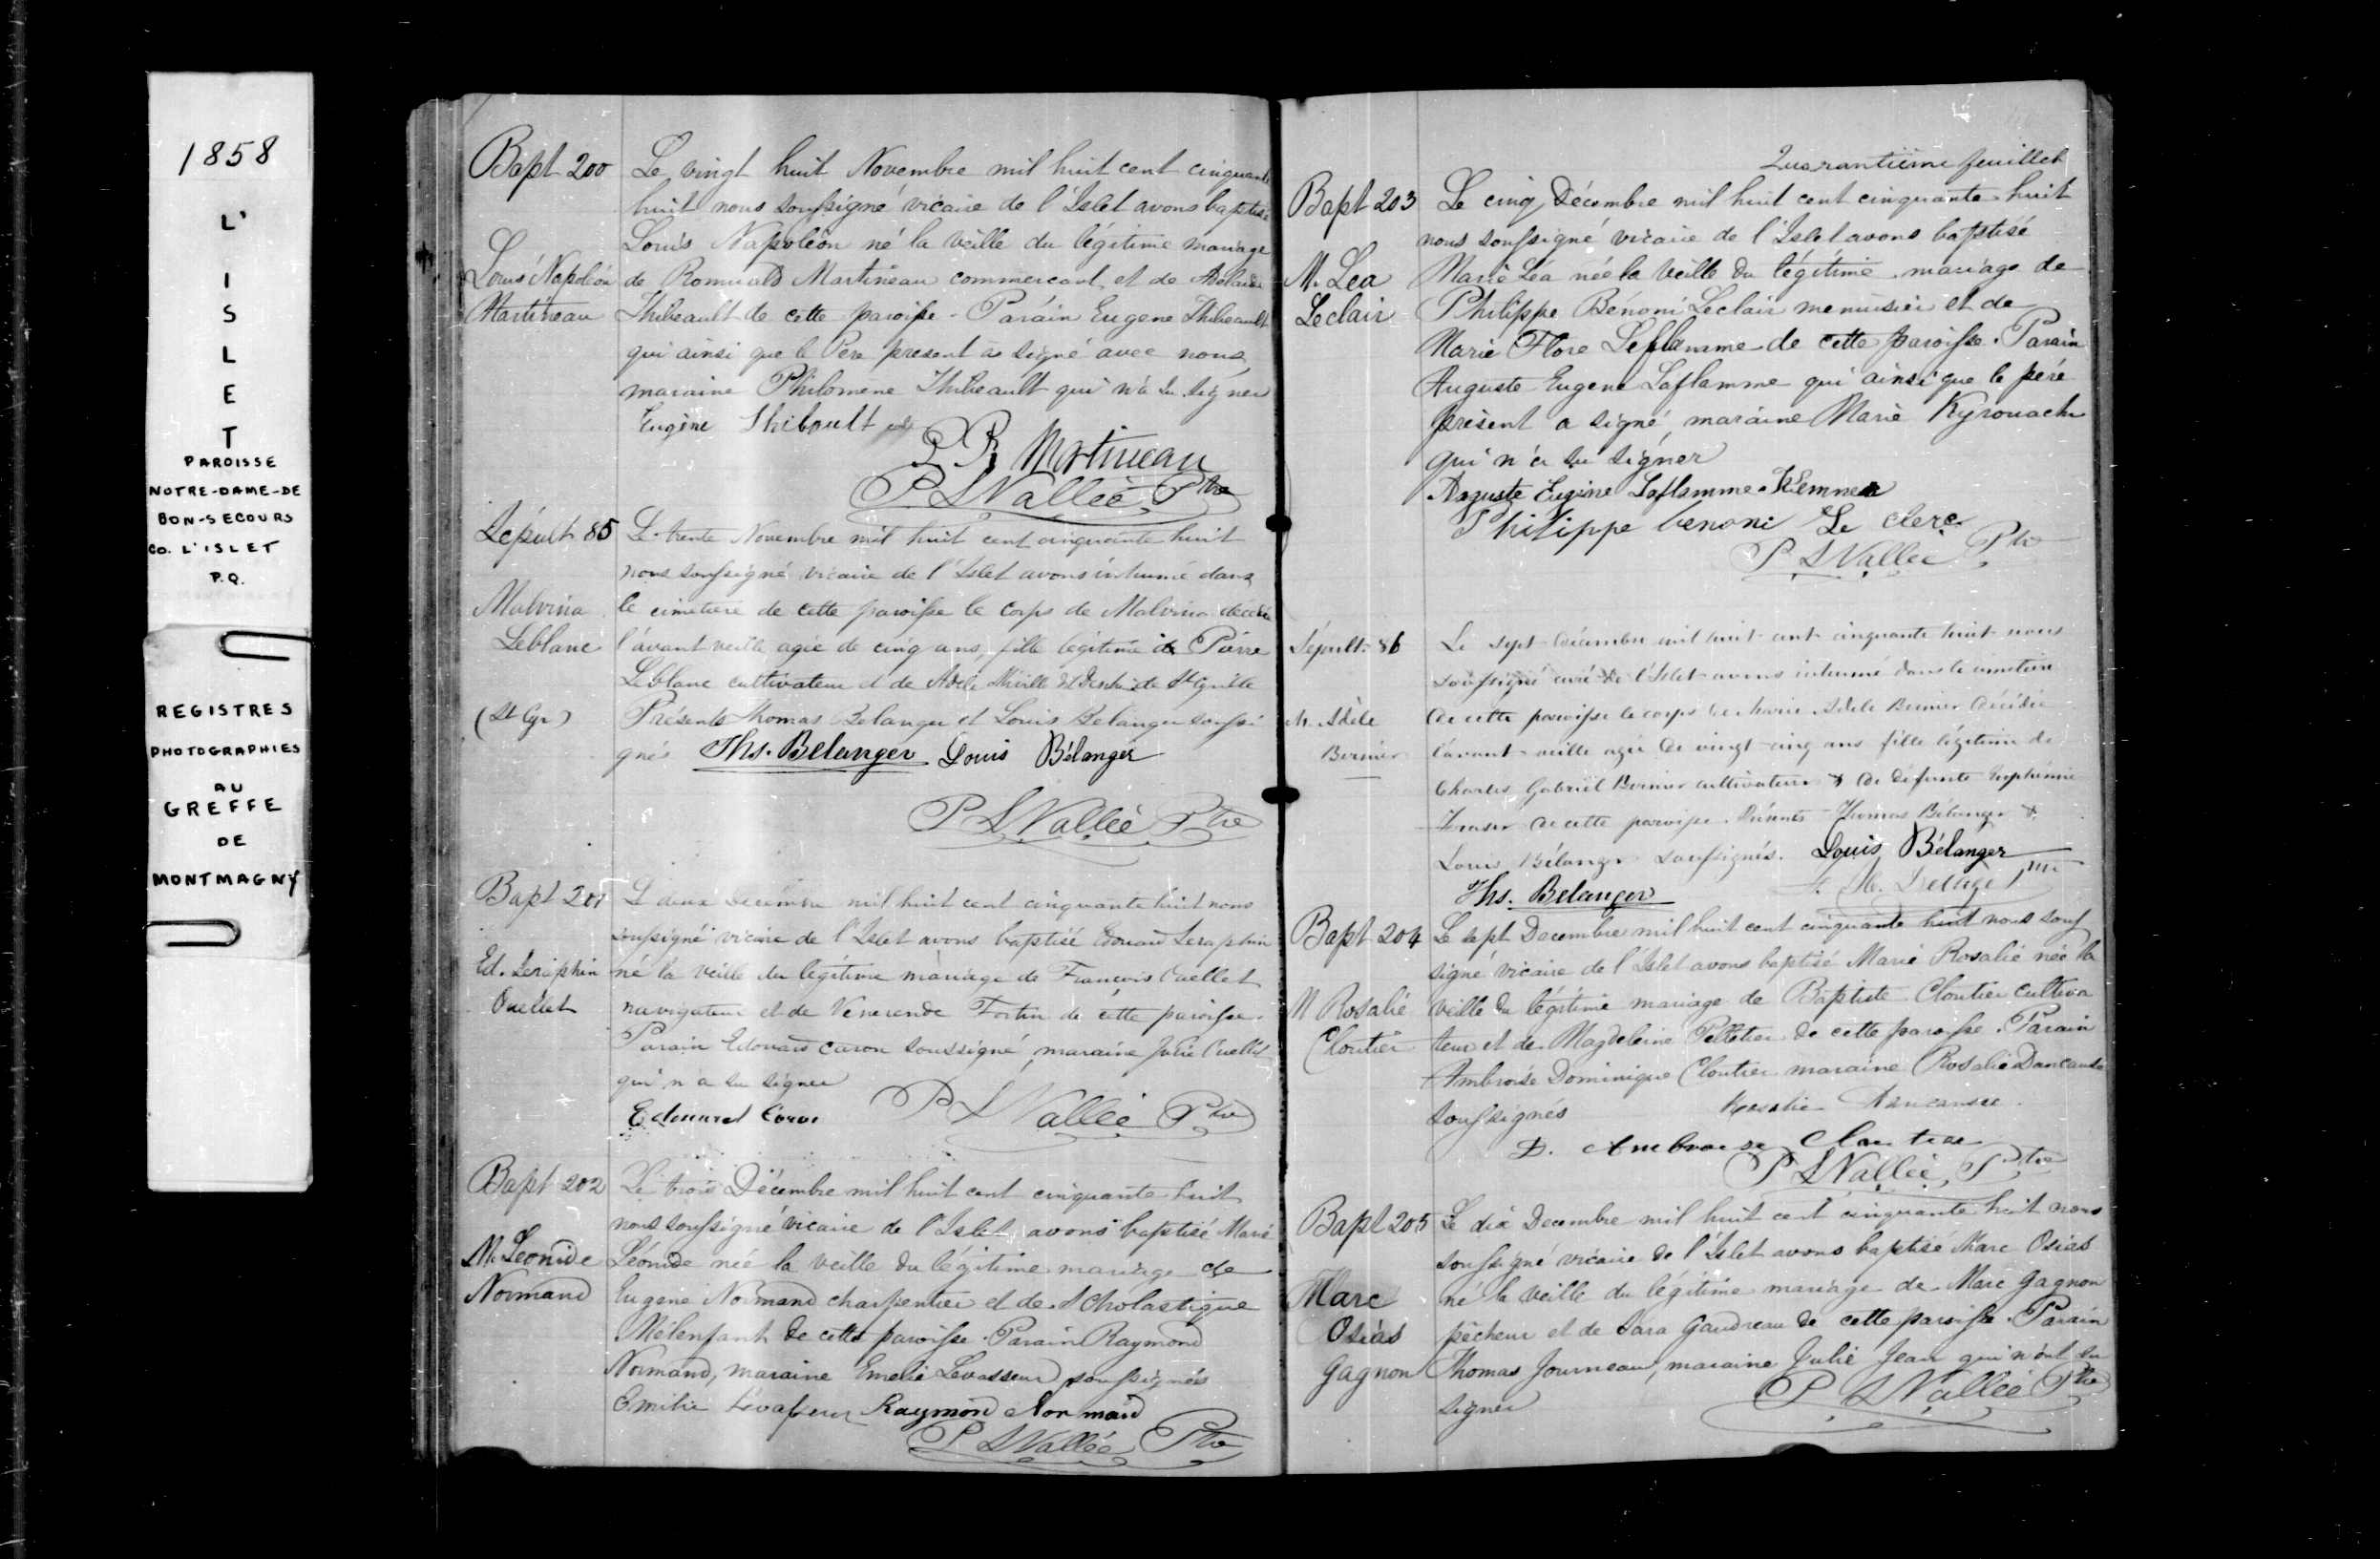 1858
L'
I
S
L
E
T
PAROISSE
NOTRE-DAME-DE
BON-SECOURS
CO. L'ISLET
P.Q.
REGISTRES
PHOTOGRAPHIES
AU
GREFFE
DE
MONTMAGNY
Bapt 200
Louis Napoléon
Martineau
Le vingt huit Novembre mil huit cent cinquante
huit nous soussigné vicaire de l'Islet avons baptisé
Louis Napoléon né la veille du légitime mariage
de Romuald Martineau commercant et de
Thibeault de cette paroisse - Parain Eugene Thibeault
qui ainsi que le Pere present a signé avec nous
maraine Philomene Thibeault qui n'a su signer
Eugène Thibault
Martineau
P S Vallée Ptre
Sépult 85
Malvina
Leblanc
(St Cyr)
Le trente Novembre mil huit cent cinquante huit
nous soussigné vicaire de l'Islet avons inhumé dans
le cimetiere de cette paroisse le corps de Malvina décédée
l'avant veille agée de cinq ans, fille legitime de Pierre
Leblanc cultivateur et de Adele Miville dt Deschaine de St Cyrille
Présents Thomas Belanger et Louis Belanger soussi
gnés Ths. Belanger Louis Bélanger
P S Vallée Ptre
Bapt 201
Ed. Seraphin
Ouellet
Le deux Decembre mil huit cent cinquante huit nous
soussigné vicaire de l'Islet avons baptisé Edouard Seraphin
né la veille du legitime mariage de François Ouellet
navigateur et de Venerende Fortin de cette paroisse.
Parain Edouard Caron soussigné, maraine Julie Ouellet
qui n'a su signer
Edouard Caron
P S Vallée Ptre
Bapt 202
M. Leonide
Normand
Le trois Décembre mil huit cent cinquante huit
nous soussigné vicaire de l'Islet avons baptisé Marie
Léonide née la veille du légitime mariage de
Eugene Normand charpentier et de Scholastique
Mélenfant de cette paroisse. Parain Raymond
Normand, maraine Emelie Levasseur soussignés
Emilie Levasseur Raymond Normand
P S Vallée Ptre
Quarantième feuillet
Bapt 203
M. Lea
Leclair
Le cinq Décembre mil huit cent cinquante huit
nous soussigné vicaire de l'Islet avons baptisé
Marie Léa née la veille du légitime mariage de
Philippe Bénoni Leclair menuisier et de
Marie Flore Leflamme de cette paroisse. Parain
Auguste Eugene Laflamme qui ainsi que le père
présent a signé, maraine Marie Kyrouack
qui n'a su signer
Auguste Eugène Laflamme Kemner
Philippe benoni Le clerc
P S Vallée Ptre
Sépult. 86
M. Adèle
Bernier
Le sept décembre mil huit cent cinquante huit nous
soussigné curé de l'Islet avons inhumé dans le cimetiere
de cette paroisse le corps de Marie Adele Bernier décédée
l'avant-veille agée de vingt-cinq ans fille légitime de
Charles Gabriel Bernier cultivateur & de défunte Euphémie
de cette paroisse. Présents Thomas Bélanger &
Louis Bélanger soussignés. Louis Bélanger
Ths. Belanger Delage Ptre
Bapt 204
M Rosalie
Cloutier
Le sept Decembre mil huit cent cinquante huit nous sous
signé vicaire de l'Islet avons baptisé Marie Rosalie née la
veille du légitime mariage de Baptiste Cloutier cultiva
teur et de Magdeleine Pelletier de cette paroisse. Parain
Ambroise Dominique Cloutier maraine Rosalie Dancause
soussignés Rosalie Dancause
D. Ambroise Cloutier
P S Vallée, Ptre
Bapt 205
Marc
Osias
Gagnon
Le dix Decembre mil huit cent cinquante huit nous
soussigné vicaire de l'Islet avons baptisé Marc Osias
né la veille du légitime mariage de Marc Gagnon
pêcheur et de Sara Gaudreau de cette paroisse. Parain
Thomas Journeau, maraine Julie Jean qui n'ont su
signer
P S Vallée Ptre